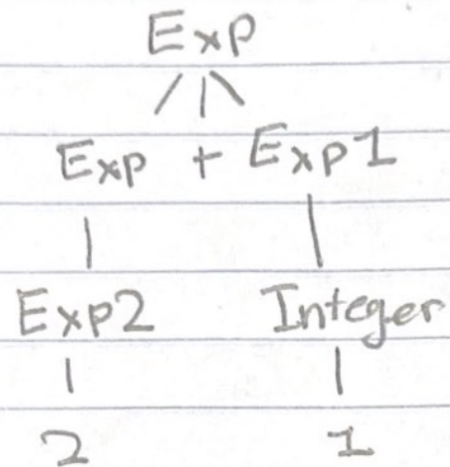 Exp
Exp + Exp1
Exp2 Integer
2 1